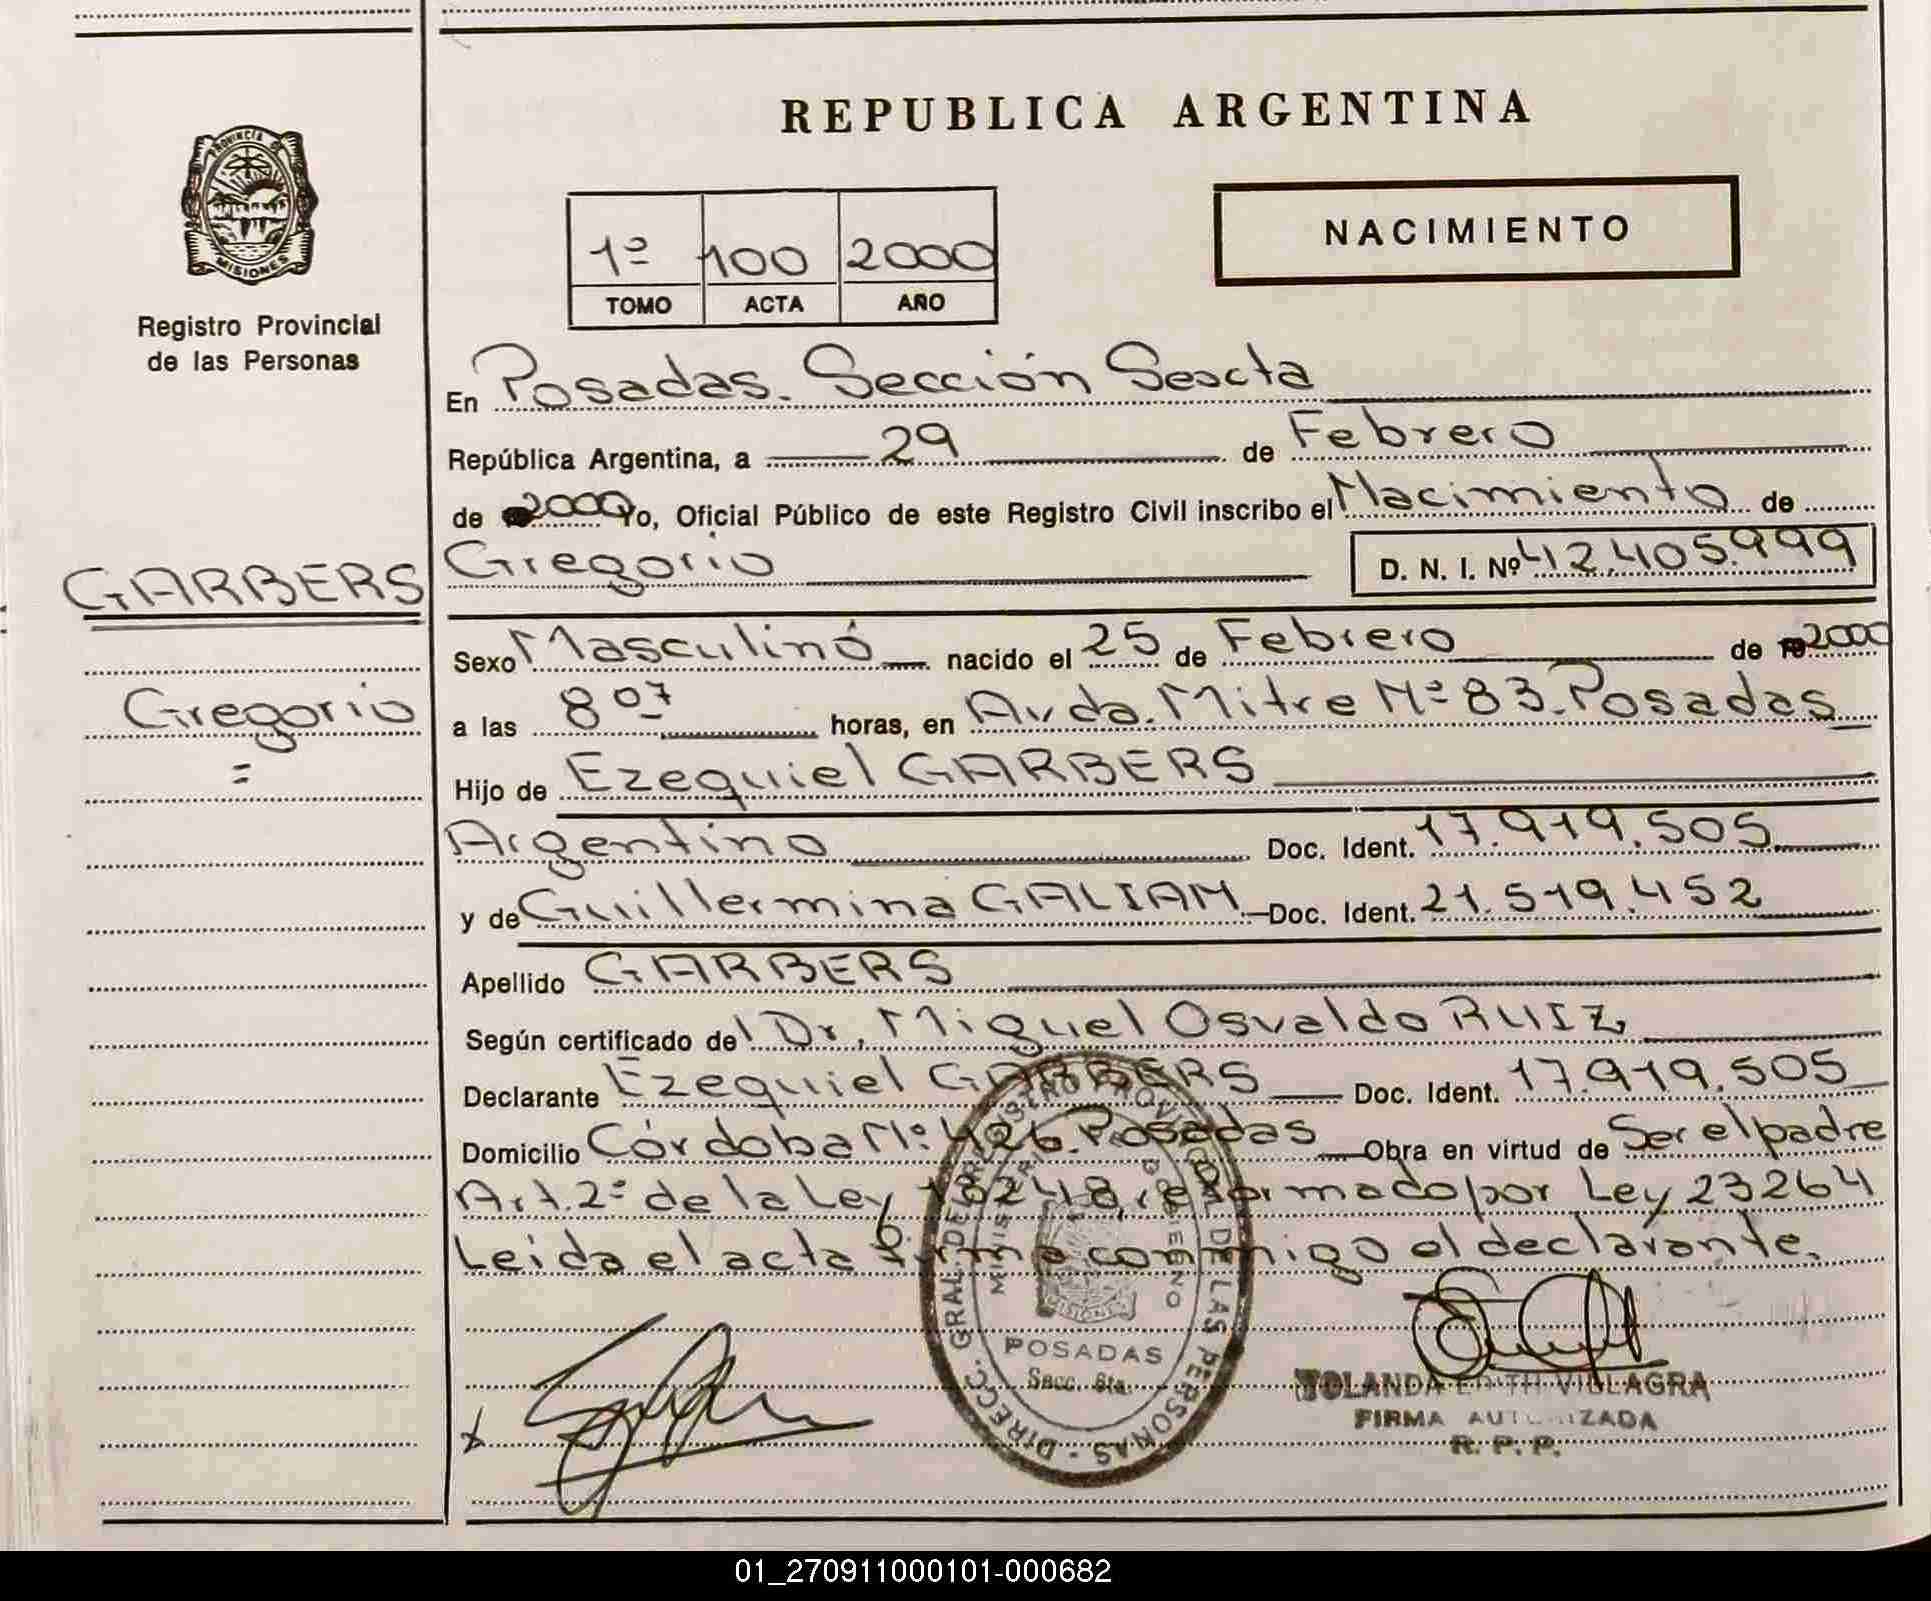 PROVINCIA DE
MISIONES
Registro Provincial
de las Personas
GARBERS
Gregorio
REPUBLICA ARGENTINA
1º 100 2000
TOMO ACTA AÑO
NACIMIENTO
En Posadas. Sección Sexta
República Argentina, a 29 de Febrero
de 2000 Yo, Oficial Público de este Registro Civil inscribo el Nacimiento de
Gregorio D. N. I. Nº 42.405.999
Sexo Masculino nacido el 25 de Febrero de 2000
a las 8 07 horas, en Avda. Mitre Nº 83. Posadas
Hijo de Ezequiel GARBERS
Argentino Doc. Ident. 17.919.505
y de Guillermina GALIAN Doc. Ident. 21.519.452
Apellido GARBERS
Según certificado del Dr. Miguel Osvaldo RUIZ
Declarante Ezequiel GARBERS Doc. Ident. 17.919.505
Domicilio Córdoba Nº 426. Posadas Obra en virtud de Ser el padre
Art. 2º de la Ley 18248, reformado por Ley 23264
Leída el acta firma conmigo el declarante.
DIRECC. GRAL. DEL REGISTRO PROVINCIAL DE LAS PERSONAS
MINISTERIO DE GOBIERNO
MISIONES
POSADAS
Secc. 6ta.
YOLANDA EDITH VILLAGRA
FIRMA AUTORIZADA
R. P. P.
01_270911000101-000682